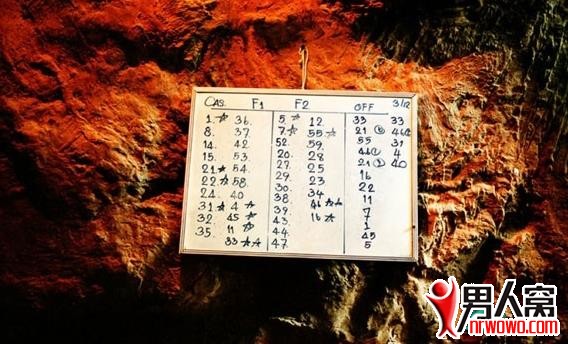 CAS. F1 F2 OFF 3/12
1.☆ 36. 5.☆ 12 33 33
8. 37. 7.☆ 55.☆ 21
14. 42 52. 59. 55 31
15. 53. 20. 28 4
21.☆ 54. 27. 25 21 40
22.☆ 58. 29. 23 16
24. 40 30. 34 22
31☆ 4☆ 38. 46☆☆ 11
32. 45☆ 39. 16☆ 7
35. 11☆ 43. 1
33☆☆ 44. 45
47. 5
男人窝
nrwowo.com